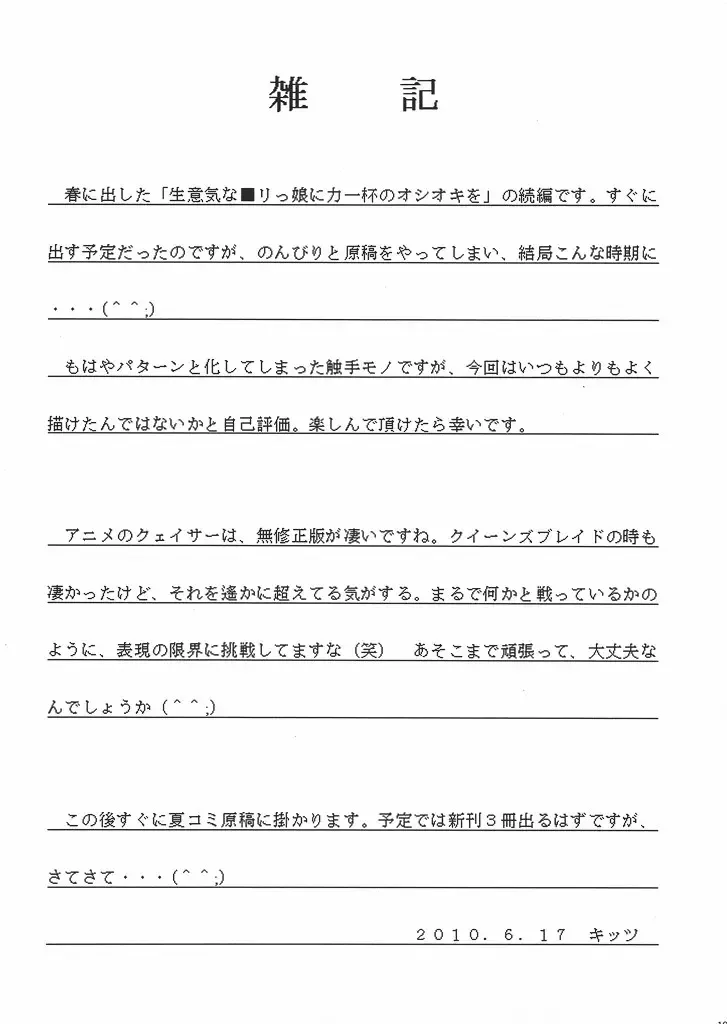 雑　　記
春に出した「生意気な■リっ娘に力一杯のオシオキを」の続編です。すぐに
出す予定だったのですが、のんびりと原稿をやってしまい、結局こんな時期に
・・・(＾＾;)
もはやパターンと化してしまった触手モノですが、今回はいつもよりもよく
描けたんではないかと自己評価。楽しんで頂けたら幸いです。
アニメのクェイサーは、無修正版が凄いですね。クイーンズブレイドの時も
凄かったけど、それを遙かに超えてる気がする。まるで何かと戦っているかの
ように、表現の限界に挑戦してますな（笑）　あそこまで頑張って、大丈夫な
んでしょうか（＾＾;）
この後すぐに夏コミ原稿に掛かります。予定では新刊３冊出るはずですが、
さてさて・・・(＾＾;)
２０１０．６．１７　キッツ